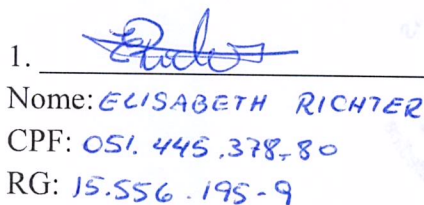 1.
Nome: ELISABETH RICHTER
CPF: 051.445.378-80
RG: 15.556.195-9